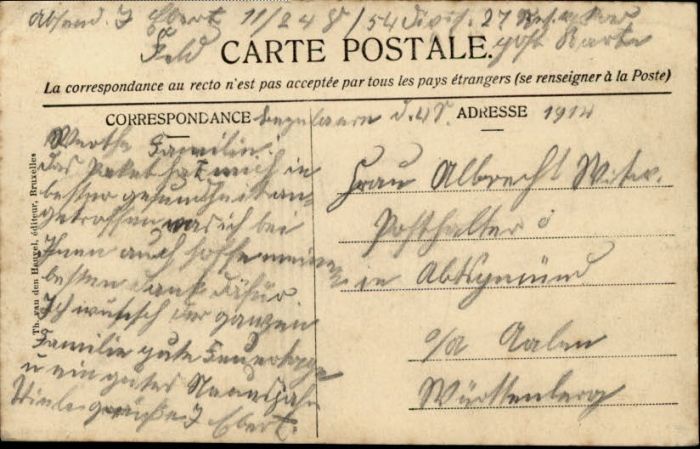 Absend. J Ebert 11/248/54 Divis. 27 Res.
Feld post Karte
CARTE POSTALE.
La correspondance au recto n'est pas acceptée par tous les pays étrangers (se renseigner à la Poste)
CORRESPONDANCE
ADRESSE
1914
Werthe Familie!
das Paket hat mich in
bester gesundheit an-
getroffen was ich bei
Ihnen auch hoffe meinen
besten dank dafür
Ich wünsch der ganzen
Familie gute Feuertage
u ein gutes Neues Jahr
Viele grüße J Ebert.
Frau Albrecht Witw.
Posthalter
in Abtsgmünd
o/a Aalen
Württenberg
Th. van den Heuvel, éditeur, Bruxelles